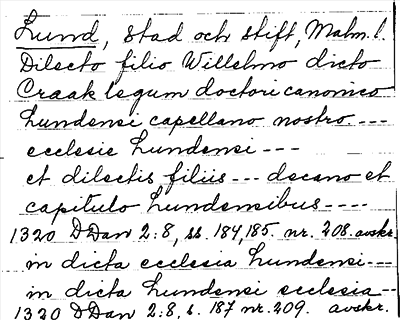 Lund, stad och stift, Malm. l.
Dilecto filio Willelmo dicto
Craak legum doctori canonico
Lundensi capellano nostro ---
ecclesie Lundensi ---
et dilectis filiis --- decano et
capitulo Lundensibus ----
1320 D Dan 2:8, ss. 184, 185. nr. 208. avskr.
in dicta ecclesia Lundensi---
in dicta Lundensi ecclesia --
1320 D Dan 2:8, s. 187 nr. 209. avskr.